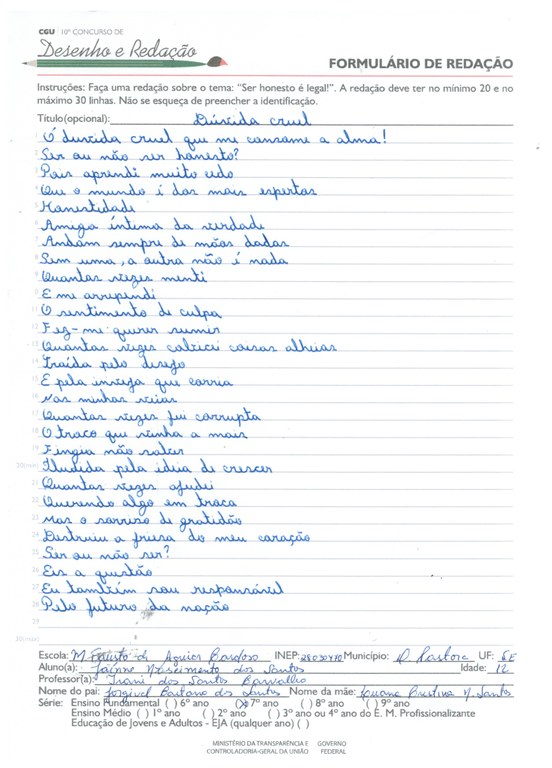 CGU | 10º CONCURSO DE
Desenho e Redação
FORMULÁRIO DE REDAÇÃO
Instruções: Faça uma redação sobre o tema: "Ser honesto é legal!". A redação deve ter no mínimo 20 e no
máximo 30 linhas. Não se esqueça de preencher a identificação.
Título(opcional): Dúvida cruel
1 Ó duvida cruel que me consome a alma!
2 Ser ou não ser honesto?
3 Pois aprendi muito cedo
4 Que o mundo é dos mais espertos
5 Honestidade
6 Amiga íntima da verdade
7 Andam sempre de mãos dadas
8 Sem uma, a outra não é nada
9 Quantas vezes menti
10 E me arrependi
11 O sentimento de culpa
12 Fez-me querer sumir
13 Quantas vezes cobicei coisas alheias
14 Traída pelo desejo
15 E pela inveja que corria
16 Nas minhas veias
17 Quantas vezes fui corrupta
18 O troco que vinha a mais
19 Fingia não saber
20(min) Iludida pela ideia de crescer
21 Quantas vezes ajudei
22 Querendo algo em troca
23 Mas o sorriso de gratidão
24 Destruiu a frieza do meu coração
25 Ser ou não ser?
26 Eis a questão
27 Eu também sou responsável
28 Pelo futuro da nação
29
30(max)
Escola: M. Fausto de Aguiar Cardoso INEP: Município: D. Pastora UF: SE
Aluno(a): Nascimento dos Santos Idade: 12
Professor(a): Irani dos Santos Carvalho
Nome do pai: dos Santos Nome da mãe: Cristina N. Santos
Série: Ensino Fundamental ( ) 6º ano (x) 7º ano ( ) 8º ano ( ) 9º ano
Ensino Médio ( ) 1º ano ( ) 2º ano ( ) 3º ano ou 4º ano do E. M. Profissionalizante
Educação de Jovens e Adultos - EJA (qualquer ano) ( )
MINISTÉRIO DA TRANSPARÊNCIA E GOVERNO
CONTROLADORIA-GERAL DA UNIÃO FEDERAL